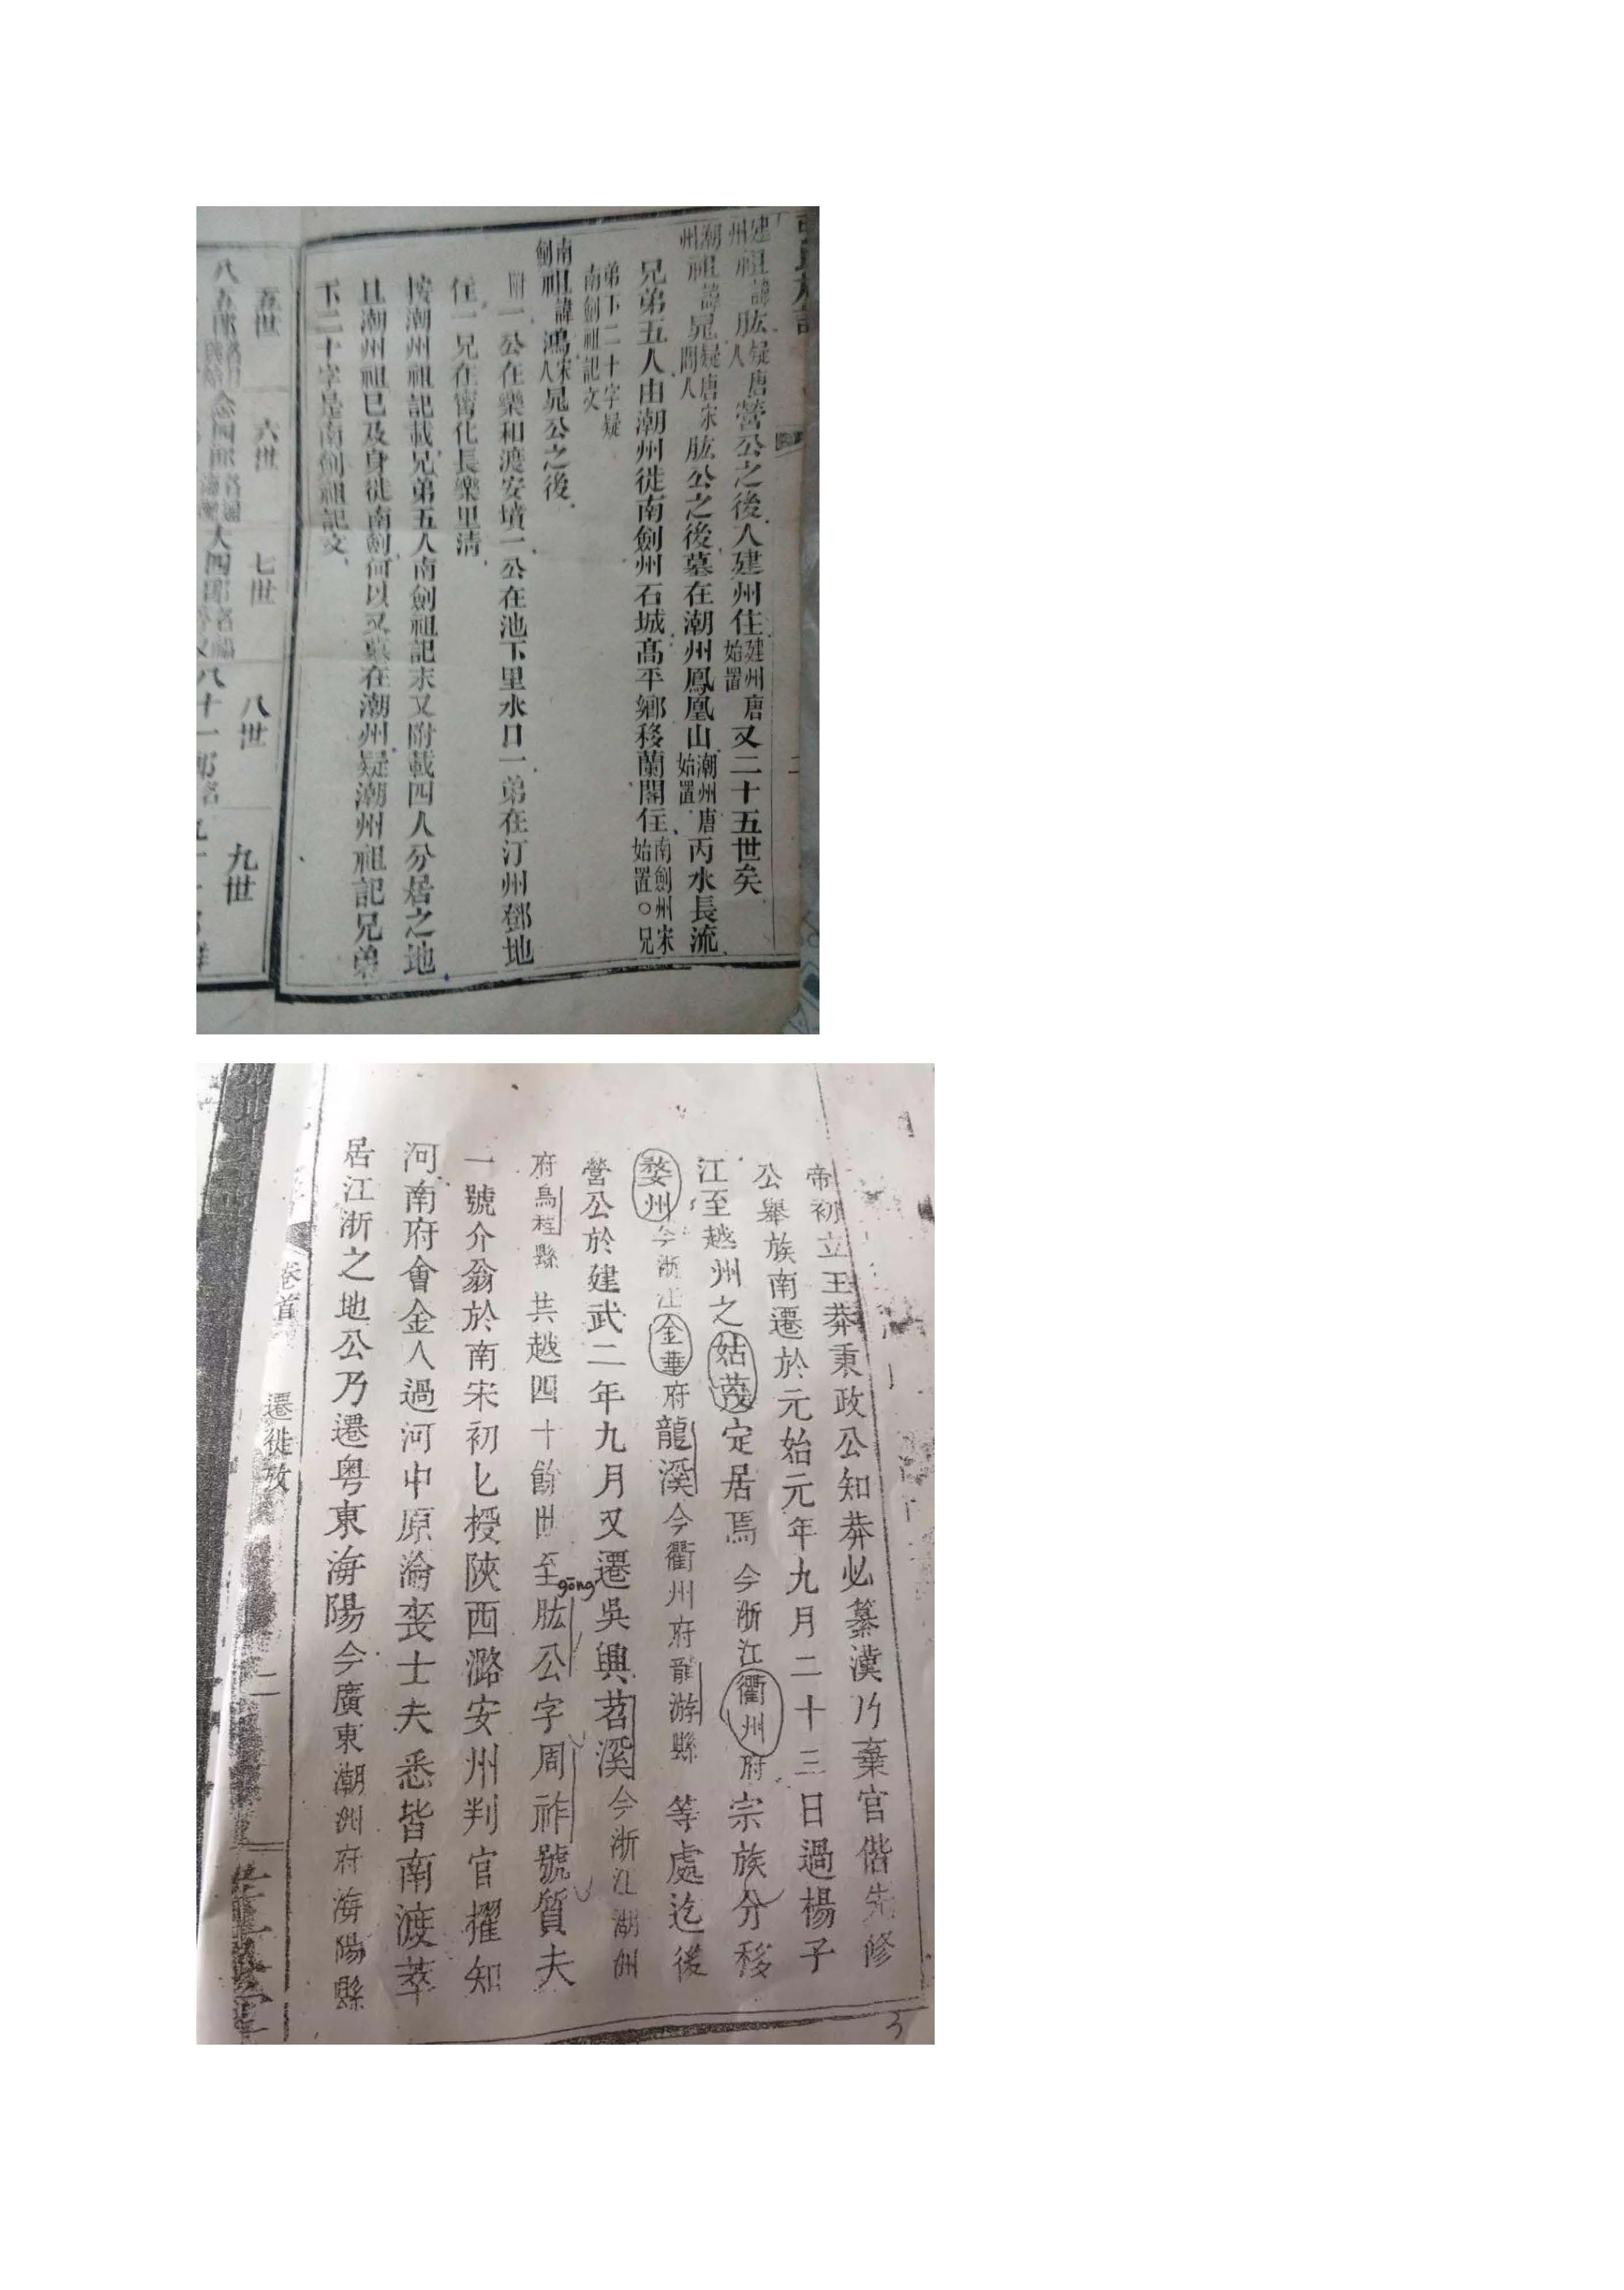 建州祖諱肱疑唐人營公之後入建州住建州唐始置又二十五世矣
潮州祖諱晁疑唐宋間人肱公之後墓在潮州鳳凰山潮州唐始置丙水長流
兄弟五人由潮州徙南劍州石城高平鄉移蘭閣住南劍州宋始置○兄
弟下二十字疑南劍祖記文
南劍祖諱鴻宋人晁公之後
附一公在樂和渡安墳一公在池下里水口一弟在汀州鄧地
住一兄在甯化長樂里清
按潮州祖記載兄弟五人南劍祖記末又附載四人分居之地
且潮州祖已及身徙南劍何以又墓在潮州疑潮州祖記兄弟
下二十字是南劍祖記文
五世
六世
七世
八世
九世
帝初立王莽秉政公知莽必篡漢乃棄官偕先修
公舉族南遷於元始元年九月二十三日過楊子
江至越州之姑蔑定居焉今浙江衢州府宗族分移
婺州今浙江金華府龍溪今衢州府龍游縣等處迄後
營公於建武二年九月又遷吳興苕溪今浙江湖州
府烏程縣共越四十餘世至肱公字周祚號質夫
gōng
一號介翁於南宋初匕授陝西潞安州判官擢知
河南府會金人過河中原淪喪士夫悉皆南渡萃
居江浙之地公乃遷粵東海陽今廣東潮州府海陽縣
卷首
遷徙攷
二
3